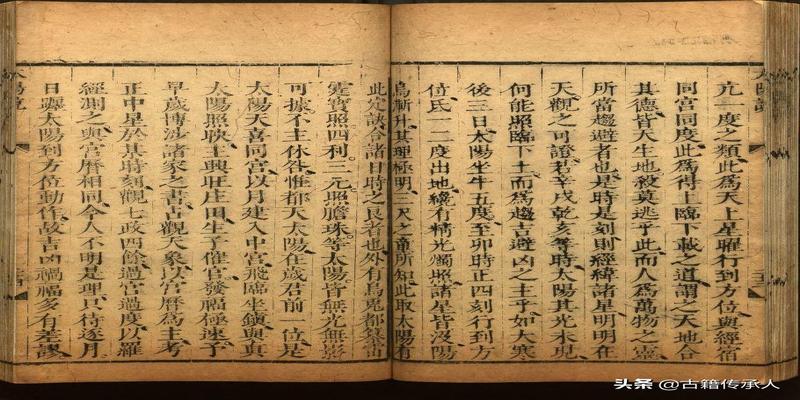 亢一度之類此爲天上星曜行到方位與經宿
同宮同度此爲得上臨下載之道謂之天地合
其德皆天生地殺莫逃乎此而人爲萬物之靈
所當趨避者也是時是刻則經緯諸星明明在
天觀之可證若辛戌乾亥等時太陽其光未現
何能照臨下土而爲趨吉避凶之主乎如大寒
後三日太陽坐牛五度至卯時正四刻行到方
位氐一二度出地纔有精光燭照諸星皆沒陽
烏漸升其理極明三尺之童所知此取太陽有
此定訣合諸日時之良者也外有烏兎都纂雷
霆寳照四利三元照膽珠等太陽皆無光無影
可據不主休咎惟都天太陽在歲君前一位是
太陽天喜同宮以月建入中宮飛臨坐鎮與真
太陽照映主興旺庄田生子催官發福極速予
早歲博涉諸家之書占觀天象以官曆爲主考
正中星於某時刻觀七政四餘過宮過度以羅
經測之與官曆相同今人不明是理只待逐月
日驟太陽到方位動作故吉凶禍福多有差謬
太陽說
头条 @古籍传承人